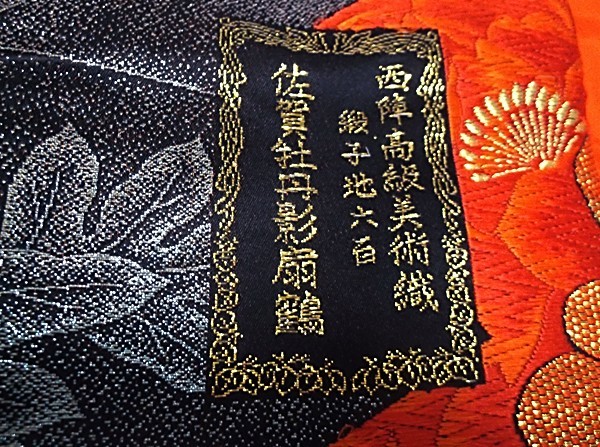 西陣高級美術織
緞子地六百
佐賀牡丹影扇鶴